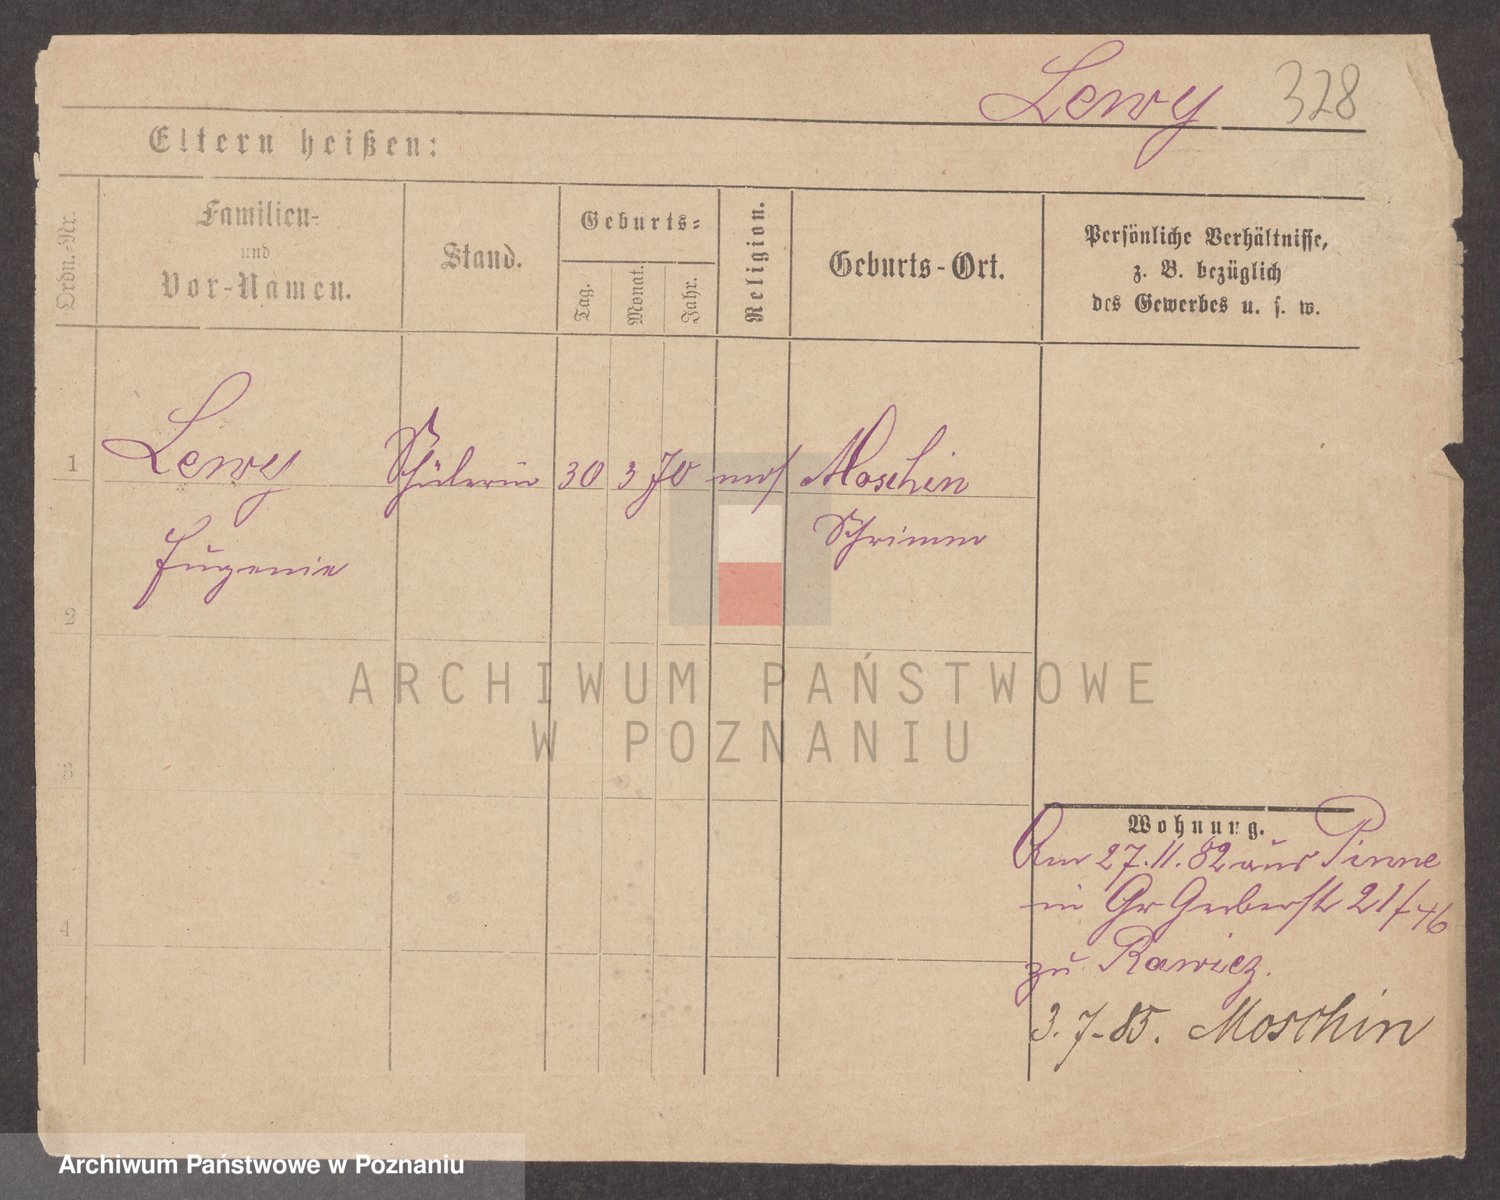 Lewy 328
Eltern heißen:
Ordn.-Nr.
Familien-
und
Vor-Namen.
Stand.
Geburts-
Tag.
Monat.
Jahr.
Religion.
Geburts-Ort.
Persönliche Verhältnisse,
z. B. bezüglich
des Gewerbes u. s. w.
1 Lewy Schülerin 30 3 70 mos Moschin
Schrimm
Eugenie
2
3
4
ARCHIWUM PAŃSTWOWE
W POZNANIU
Wohnung.
Am 27.11.82 aus Pinne
in Gr Gerberstr 21/
zu Rawicz.
3.7-85. Moschin
Archiwum Państwowe w Poznaniu